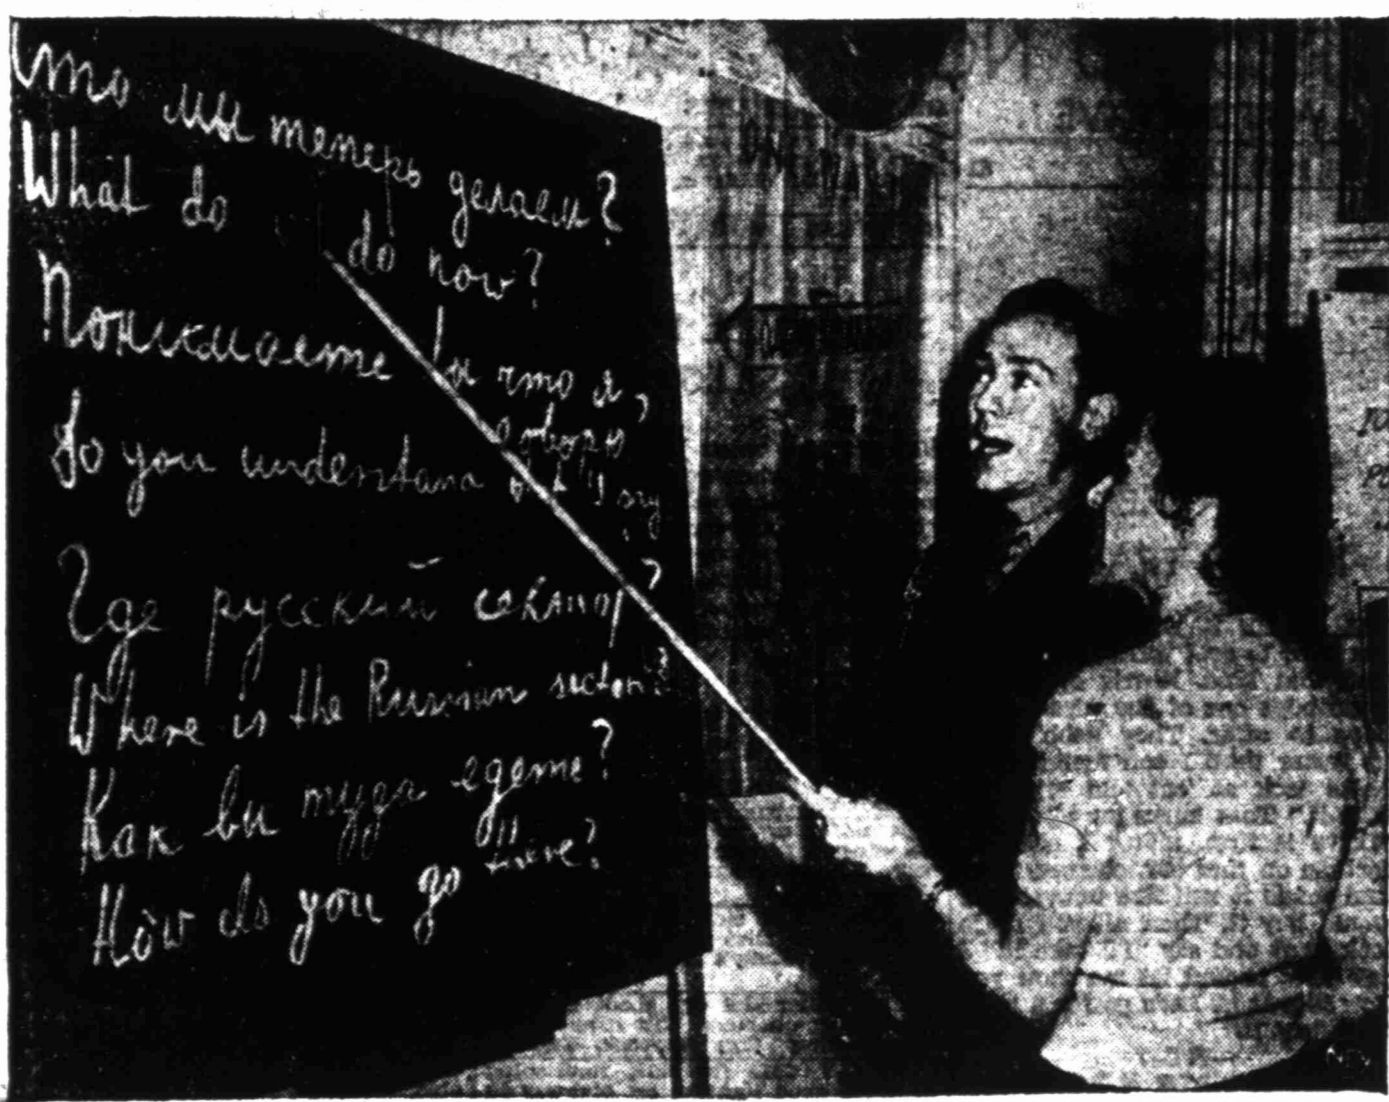 Что мы теперь делаем?
What do do now?
Понимаете вы что я
говорю,
Do you understand what I say
?
Где русский сектор?
Where is the Russian sector?
Как ви туда едете?
How do you go there?